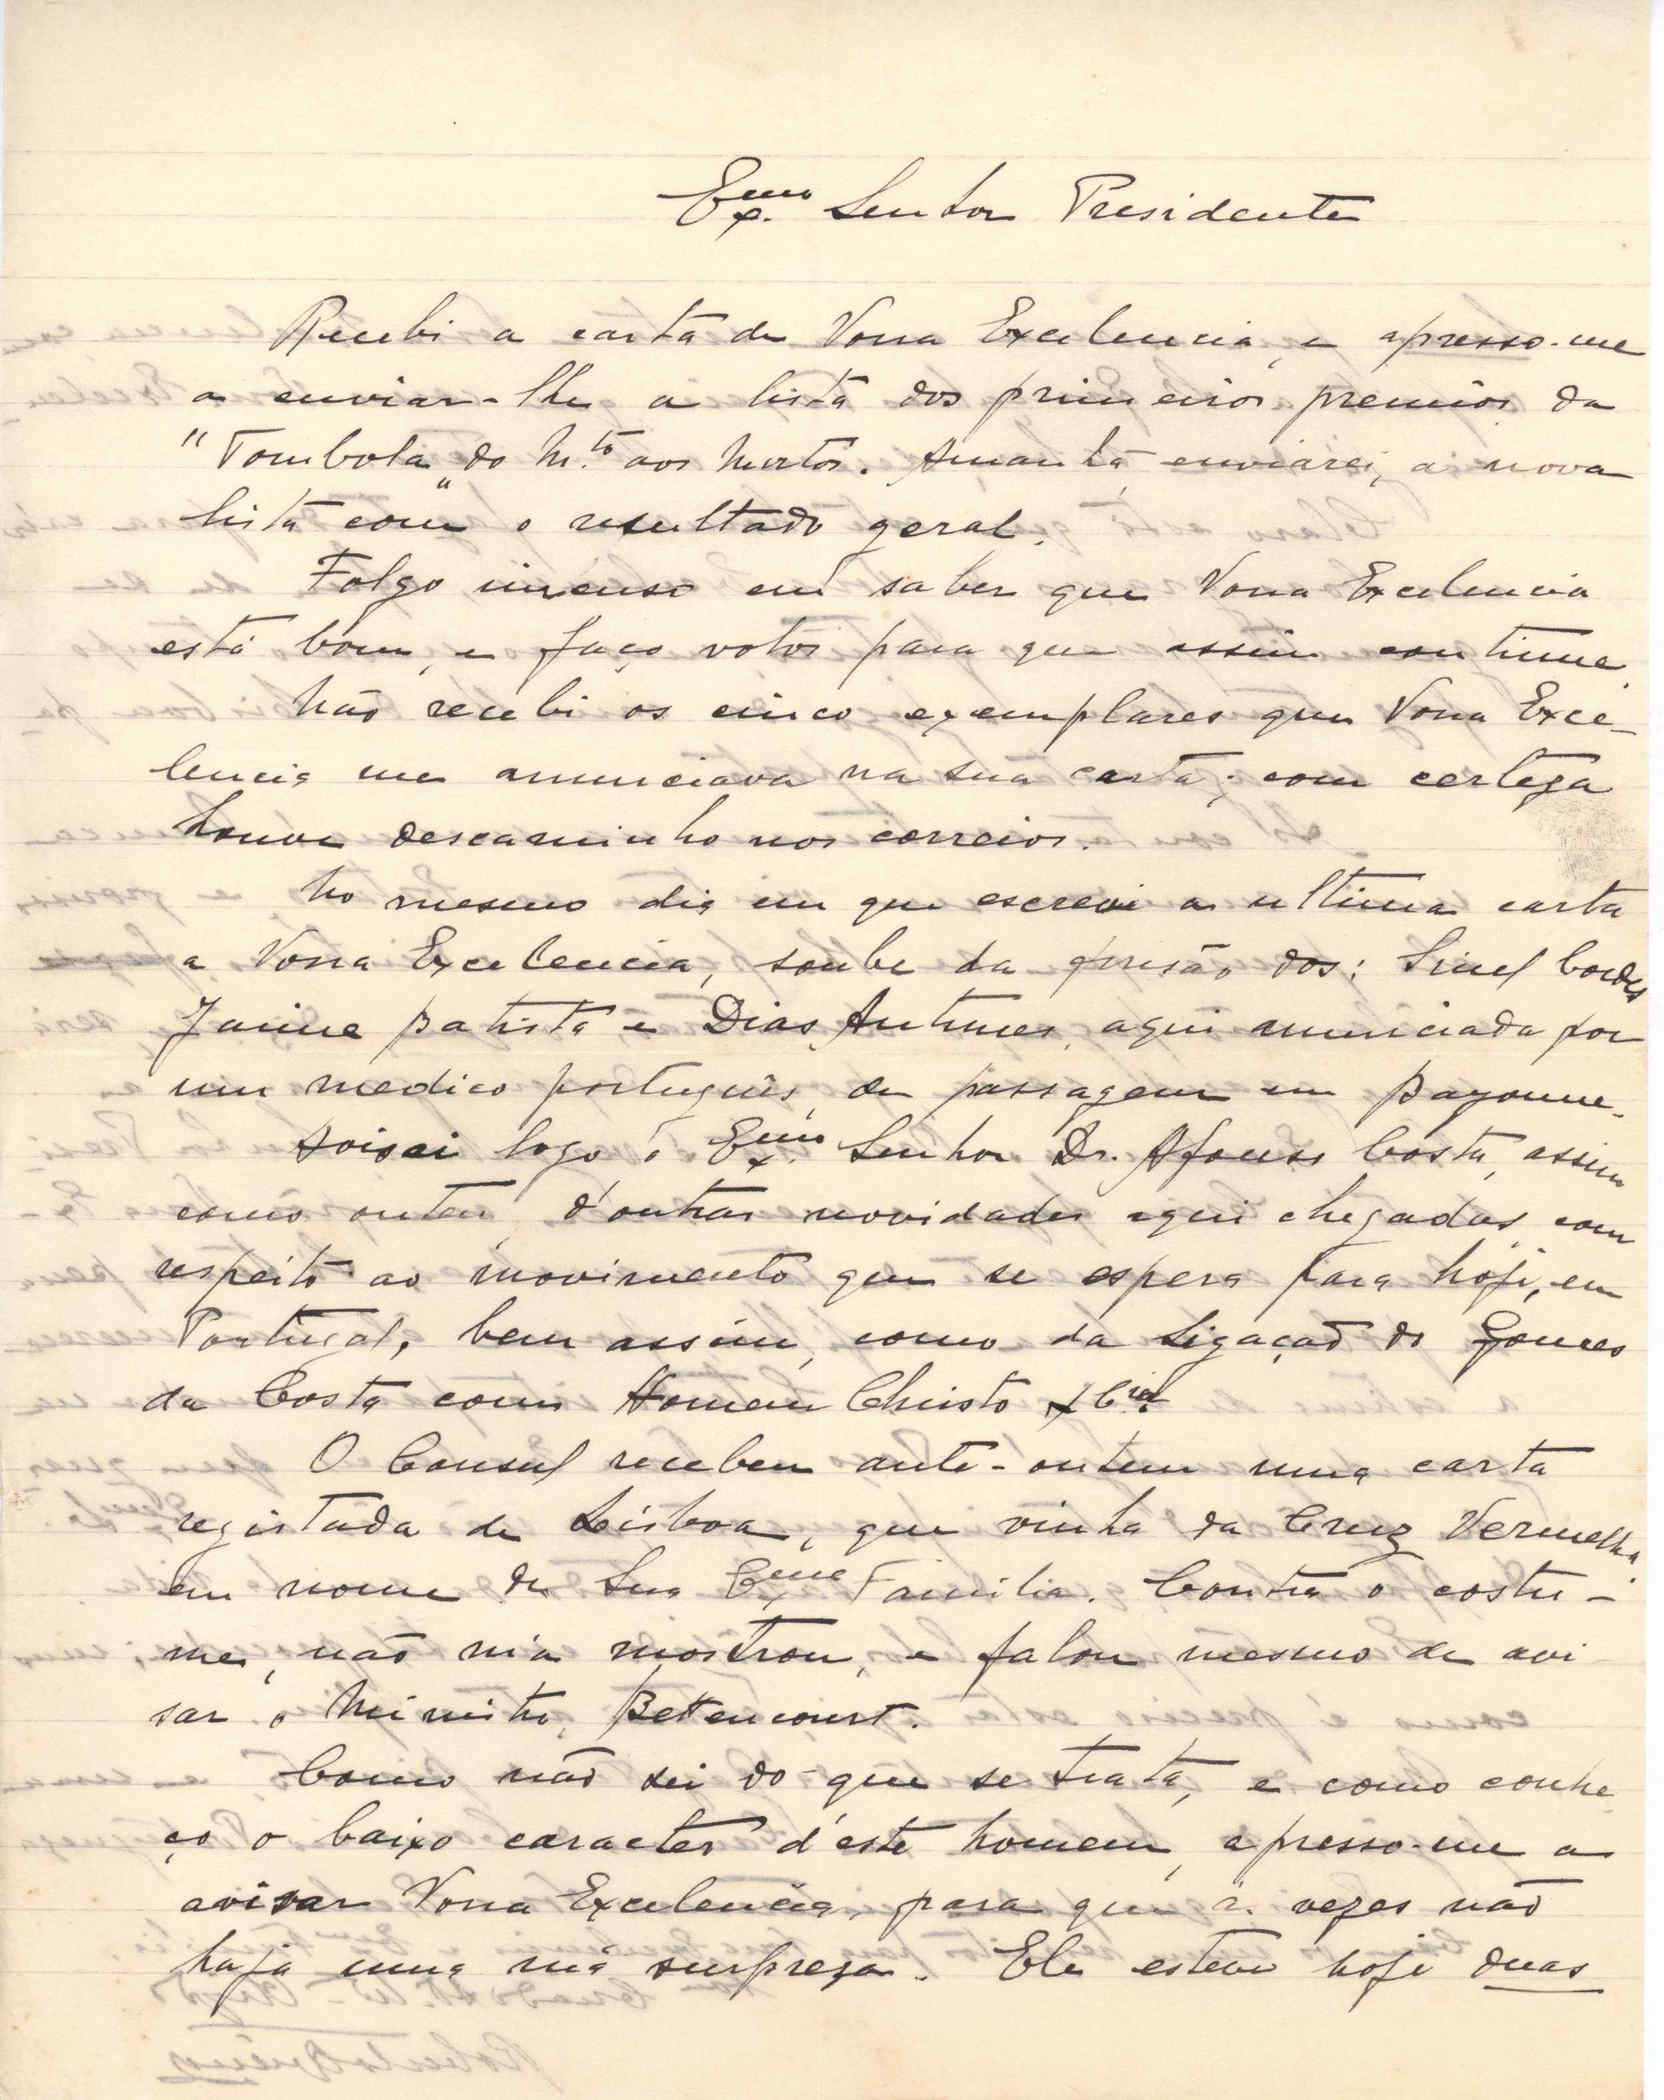 Ex.mo Senhor Presidente
Recebi a carta de Vossa Excelencia, e apresso-me
a enviar-lhe a lista dos primeiros premios da
"Tombola" do M.to aos Mortos. Amanhã, enviarei, a nova
lista com o resultado geral.
Folgo imenso em saber que Vossa Excelencia
está bom, e faço votos para que assim continue.
Não recebi os cinco exemplares que Vossa Exce-
lencia me anunciava na sua carta; com certeza
houve descaminho nos correios.
No mesmo dia em que escrevi a ultima carta
a Vossa Excelencia, soube da prisão dos: Sinel Cordes
Jaime Batista e Dias Antunes, aqui anunciada por
um medico português, de passagem em Bayonne.
Avisei logo o Ex.mo Senhor Dr. Afonso Costa, assim
como ontem, d'outras novidades aqui chegadas, com
respeito ao movimento que se espera para hoje, em
Portugal, bem assim, como da ligação do Gomes
da Costa com Homem Christo & C.ia
O Consul recebeu ante-ontem uma carta
registada de Lisboa, que vinha da Cruz Vermelha
em nome de Sua Ex.ma Familia. Contra o costu-
me, não m'a mostrou, e falou mesmo de avi
sar o Ministro, Bettencourt.
Como não sei do que se trata, e como conhe
ço o baixo caracter d'este homem, apresso-me a
avisar Vossa Excelencia, para que ás vezes não
haja uma má surpreza. Ele esteve hoje duas